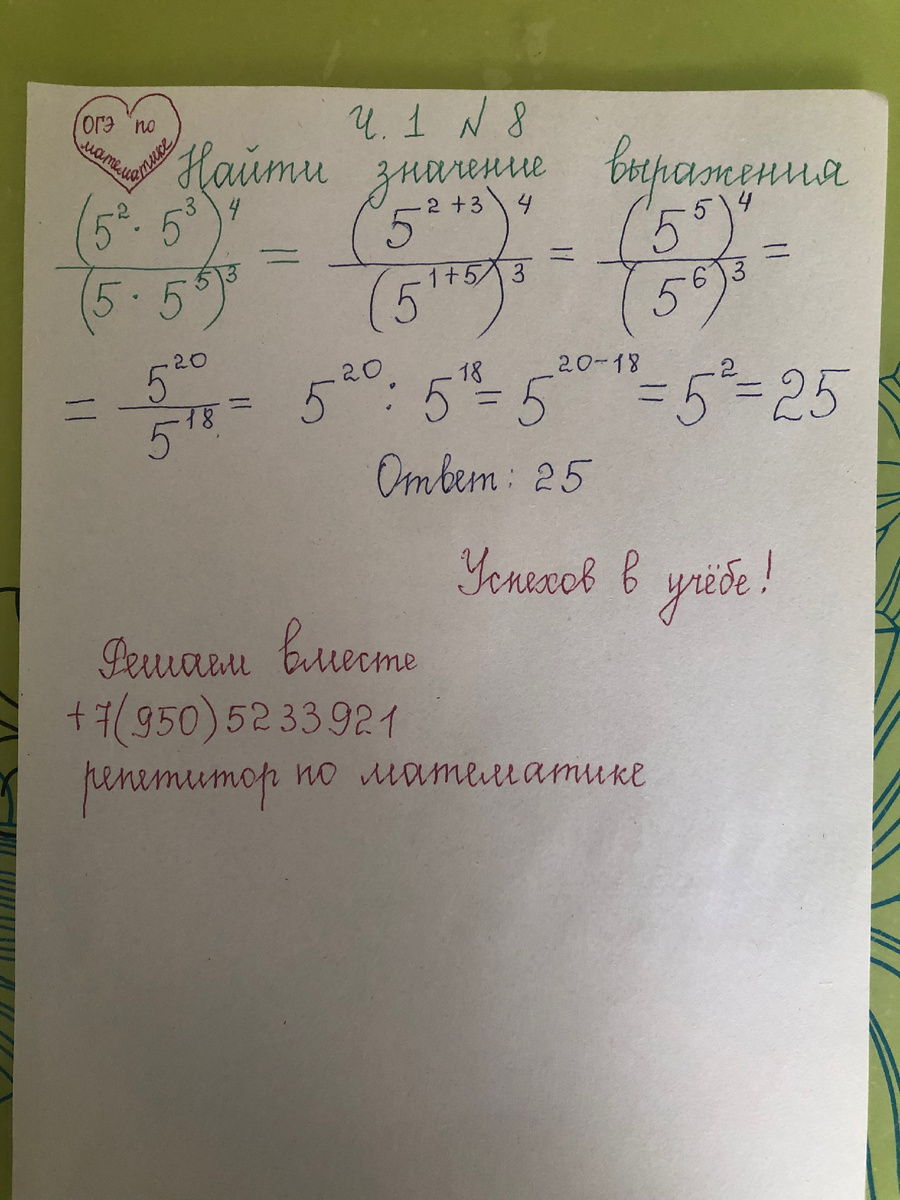 ОГЭ по
математике
Ч. 1 № 8
Найти значение выражения
(5² · 5³)⁴ / (5 · 5⁵)³ = (5²⁺³)⁴ / (5¹⁺⁵)³ = (5⁵)⁴ / (5⁶)³ =
= 5²⁰ / 5¹⁸ = 5²⁰ : 5¹⁸ = 5²⁰⁻¹⁸ = 5² = 25
Ответ: 25
Успехов в учёбе!
Решаем вместе
+7(950)5233921
репетитор по математике